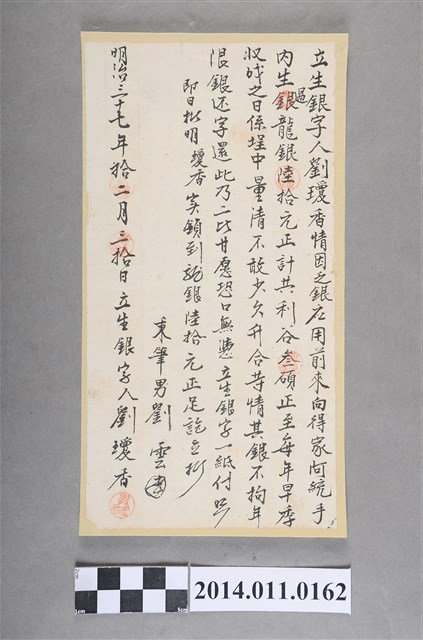 立生銀字人劉瓊香情因乏銀应用前來向得家阿統手
内生過銀龍銀陸拾元正計共利谷叁碩正至每年早季
收成之日係埕中量清不敢少欠升合苦情其銀不拘年
限銀还字還此乃二比甘愿恐口無憑立生銀字一紙付照
即日批明瓊香实領到龍銀陸拾元正足訖立批
東筆男劉雲
明治三十七年拾二月三拾日立生銀字人劉瓊香
2014.011.0162
1cm 5cm